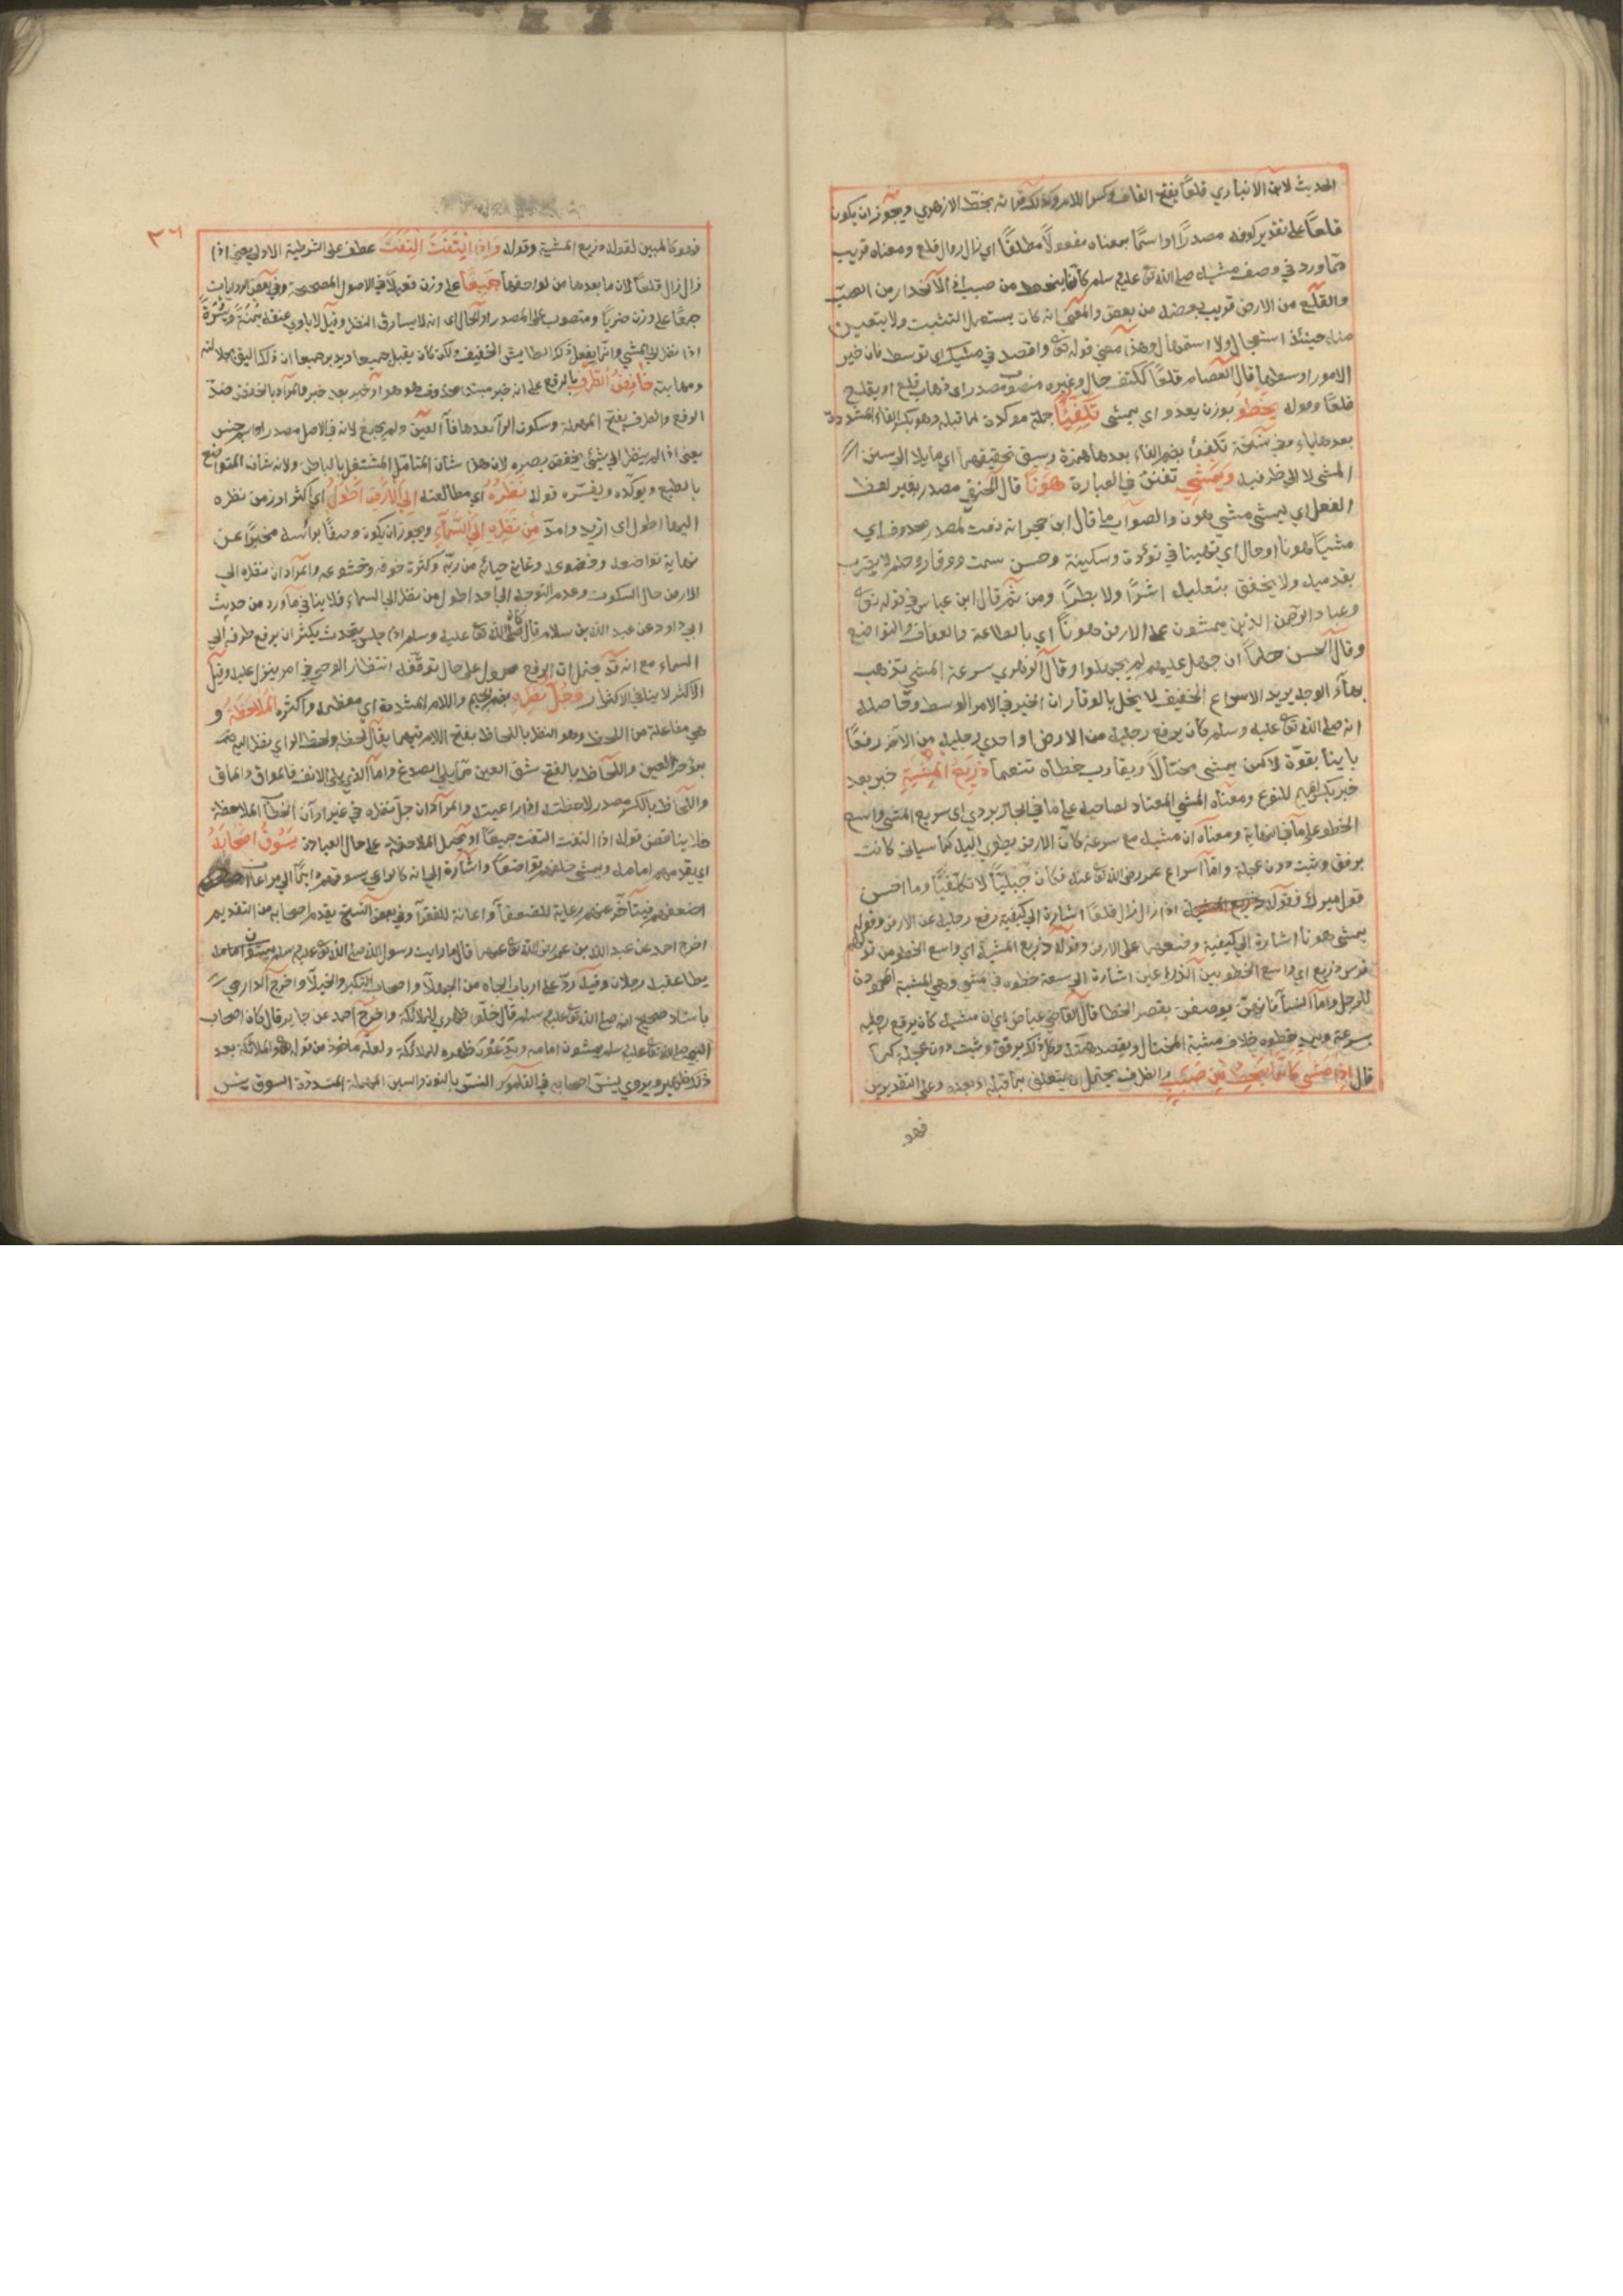 الحديث لابن الانباري قلعًا بفتح القاف وكسر اللام وكذلك قرأته بخط الازهري ويجوز ان يكون
قلعًا على تقدير كونه مصدرًا او اسمًا بمعناه مفعولًا مطلقًا اي زال زوال قلع ومعناه قريب
مما ورد في وصف مشيه صلى الله تع عليه وسلم كانما ينحط من صبب اذ الانحدار من الصبب
والقلع من الارض قريب بعضه من بعض والمعنى انه كان يستعمل التثبت ولا يتعين
منه حينئذ استعجال ولا استمهال وهذا معنى قوله تع واقصد في مشيك اي توسط فان خير
الامور اوسطها قال العصام قلعًا ككتف حال وغيره منصوب مصدر اي ذهاب قلع او يقلع
قلعًا وقوله يخطو بوزن يعدو اي يمشي تكفيًا جملة موكدة لما قبله وهو بكسر الفاء المشددة
بعدها ياء وفي نسخة تكفؤا بضم الفاء بعدها همزة وسبق تحقيقهما اي مايلا الى سنن
المشي لا الى طرفيه ويمشي تفنن في العبارة هونًا قال الحنفي مصدر بغير لفظ
الفعل اي يمشي مشي هون والصواب ما قال ابن حجر انه نعت لمصدر محذوف اي
مشيًا هونا او حال اي هينا في تؤدة وسكينة وحسن سمت ووقار وحلم لا يضرب
بقدميه ولا يخفق بنعليه اشرًا ولا بطرًا ومن ثم قال ابن عباس في قوله تع
وعباد الرحمن الذين يمشون على الارض هونًا اي بالطاعة والعفاف والتواضع
وقال الحسن حلمًا ان جهل عليهم لم يجهلوا وقال الزهري سرعة المشي تذهب
بهاء الوجه يريد الاسراع الخفيف لما يخل بالوقار ان الخير في الامر الوسط وحاصله
انه صلى الله تع عليه وسلم كان يرفع رجليه من الارض او احدي رجليه من الاخر رفعًا
باينا بقوة لا كمن يمشي مختالًا ويقارب خطاه تنعما ذريع المشية خبر بعد
خبر بكسر الميم للنوع ومعناه المشي المعتاد لصاحبه على ما في الجاربردي اي سريع المشي واسع
الخطو على ما في النهاية ومعناه ان مشيه مع سرعة كأن الارض يطوي اليه كما سياتي كانت
برفق وثبت دون عجلة واما اسراع عمر رضي الله تع عنه فكان جبليًا لا تكلفيًا وما احسن
قول ميرك فقوله اذا زال زال قلعًا اشارة الى كيفية رفع رجليه عن الارض وقوله
يمشي هونا اشارة الى كيفية وضعهما على الارض وقوله ذريع المشية اي واسع الخطو من قولهم
فرس ذريع اي واسع الخطو بين الذراعين اشارة الى سعة خطوه في المشي وهي المشية المحمودة
للرجل واما النساء فانهن يوصفن بقصر الخطا قال القاضي عياض اي ان مشيه كان يرفع رجليه
بسرعة ويمد خطوه خلاف مشية المختال ويقصد سمته وكل ذلك برفق وثبت دون عجلة كما
قال اذا مشى كانما ينحط من صبب والظرف يحتمل ان يتعلق بما قبله او بعده وعلى التقديرين
فهو
٣٦
فهو كالمبين لقوله ذريع المشية وقوله واذا التفت التفت عطف على الشرطية الاولى يعني اذا
زال زال قلعًا لان ما بعدها من لواحقها جميعًا على وزن فعيلًا في الاصول المصححة وفي بعض الروايات
جمعًا على وزن ضربًا ومنصوب على المصدر او الحال اي انه لا يسارق النظر وقيل لا يلوي عنقه يمنة ويسرة
اذا نظر الى الشي وانما يفعل ذلك الطايش الخفيف ولكن كان يقبل جميعا ويدبر جميعا ان ذلك اليق بجلالته
ومهابته خافض الطرف بالرفع على انه خبر مبتدا محذوف هو هو او خبر بعد خبر والمراد بالخفض ضد
الرفع والطرف بفتح المهملة وسكون الراء بعدها فاء العين ولم يجمع لانه في الاصل مصدر او اسم جنس
يعني اذا لم ينظر الى شيء يخفض بصره لان هذا شان المتامل المشتغل بالباطن ولانه شان المتواضع
بالطبع ويوكده ويفسره قوله نظره اي مطالعته الى الارض اطول اي اكثر او زمن نظره
اليها اطول اي ازيد وامد من نظره الى السماء ويجوز ان يكون وصفًا براسه مخبرًا عن
نهاية تواضعه وخضوعه وغاية حيائه من ربه وكثرة خوفه وخشوعه والمراد ان نظره الى
الارض حال السكوت وعدم التوجه الى احد اطول من نظره الى السماء فلا ينافي ما ورد من حديث
ابي داود عن عبد الله بن سلام قال كان صلى الله تع عليه وسلم اذا جلس يتحدث يكثر ان يرفع طرفه الى
السماء مع انه قد يحتمل ان الرفع محمول على حال توقعه انتظار الوحي في امر ينزل عليه وقيل
الاكثر لا ينافي الاكثار وجل نظره بضم الجيم واللام المشددة اي معظمه واكثره الملاحظة و
هي مفاعلة من اللحظ وهو النظر باللحاظ بفتح اللام فيهما يقال لحظه ولحظ اليه اي نظر اليه
بمؤخر العين واللحاظ بالفتح شق العين مما يلي الصدغ واما الذي يلي الانف فالموق والماق
واللحاظ بالكسر مصدر لاحظته اذا راعيته والمراد ان جل نظره في غير اوان الخطاب الملاحظة
فلا يناقض قوله اذا التفت التفت جميعًا او يحمل الملاحظة على حال العبادة يسوق اصحابه
اي يقدمهم امامه ويمشي خلفهم تواضعًا واشارة الى انه كالراعي يسوقهم او ايماء الى مراعاة
اضعفهم فيتاخر عنهم رعاية للضعفاء واعانة للفقراء وفي بعض النسخ يقدم اصحابه من التقديم
اخرج احمد عن عبد الله بن عمر رضي الله تع عنهما قال ما رايت رسول الله صلى الله تع عليه وسلم
يطا عقبه رجلان وفيه رد على ارباب الجاه من الجهلاء واصحاب التكبر والخيلاء واخرج الدارمي
باسناد صحيح انه صلى الله تع عليه وسلم قال خلوا ظهري للملائكة واخرج احمد عن جابر قال كان اصحاب
النبي صلى الله تع عليه وسلم يمشون امامه ويدعون ظهره للملائكة ولعله ماخوذ من قوله تع والملائكة بعد
ذلك ظهير ويروي ينس اصحابه في القاموس النس بالنون والسين المهملة المشددة السوق ينس